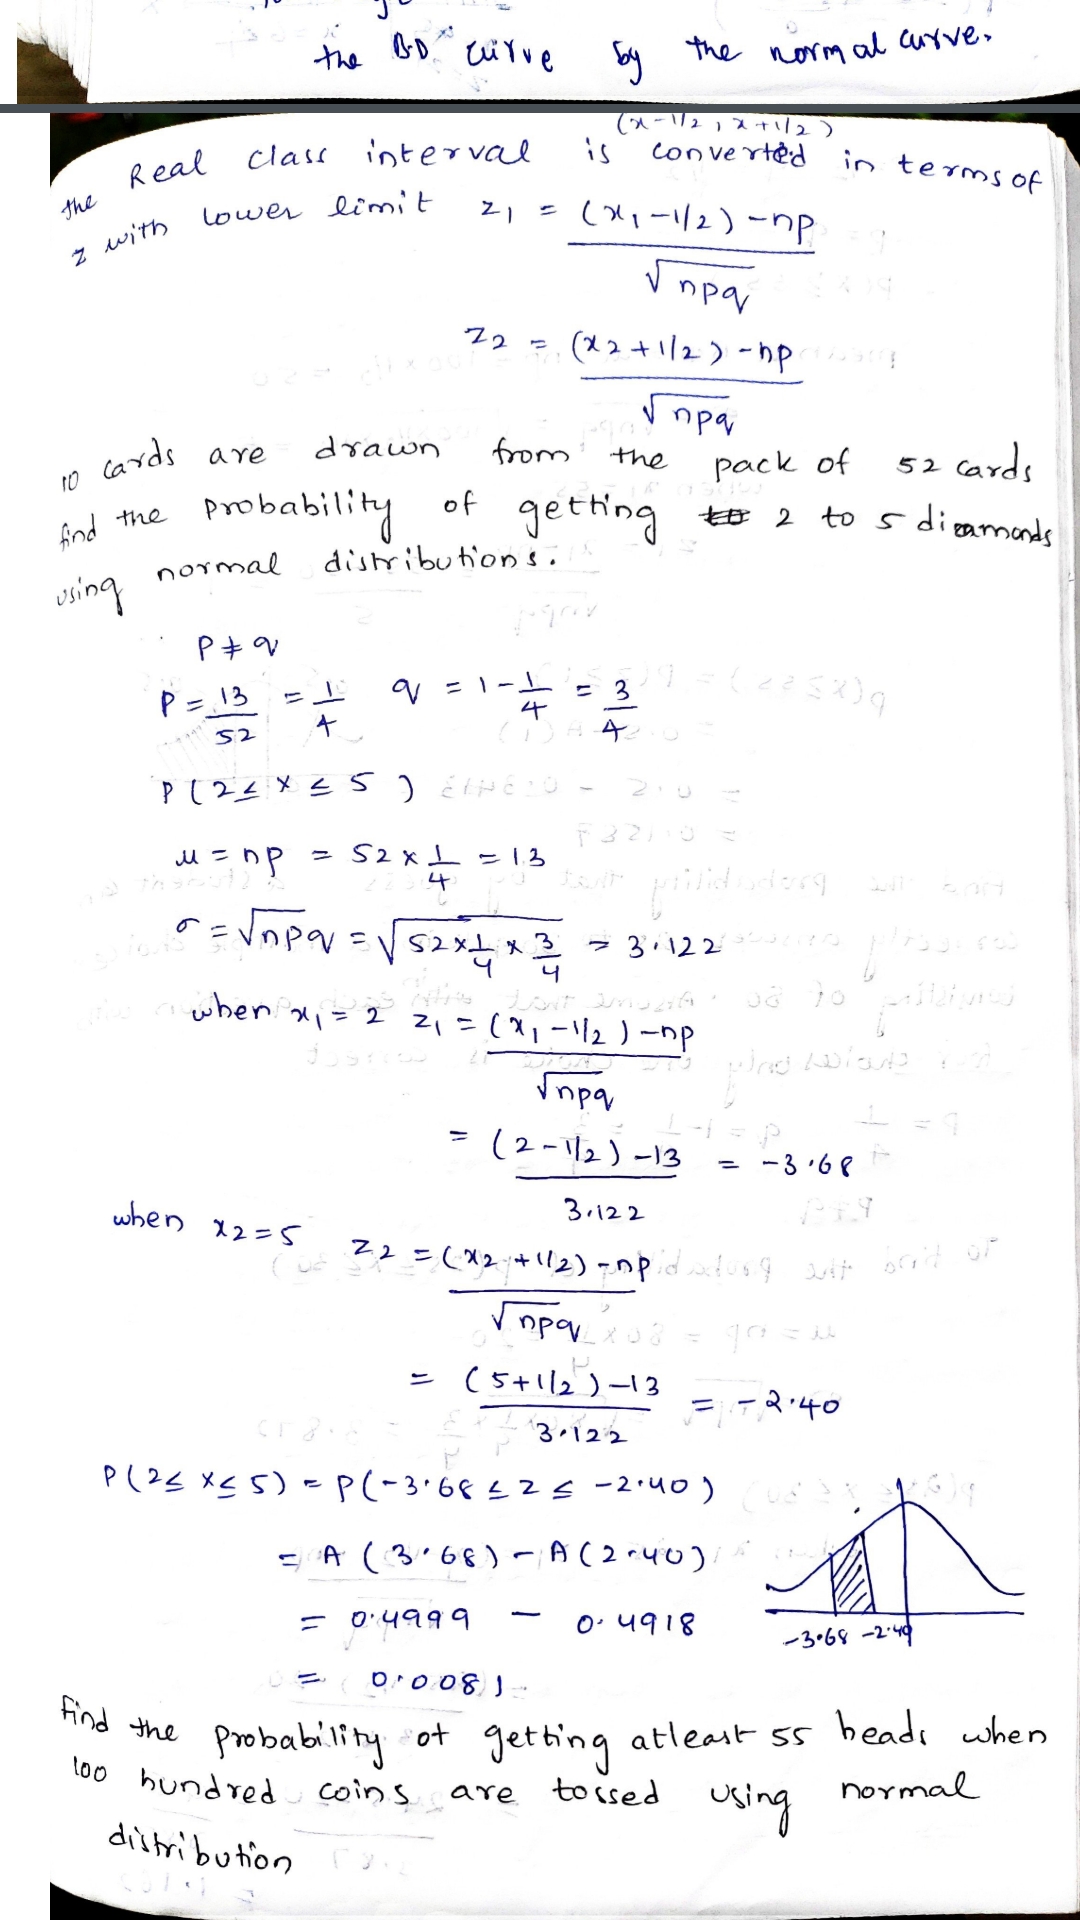 the B.D curve by the normal curve.
(x-1/2, x+1/2)
the Real class interval is converted in terms of
z with lower limit z1 = (x1-1/2)-np
√npq
z2 = (x2+1/2)-np
√npq
10 cards are drawn from the pack of 52 cards
find the probability of getting 2 to 5 diamonds
using normal distributions.
P ≠ q
P = 13/52 = 1/4 q = 1 - 1/4 = 3/4
P(2 ≤ x ≤ 5)
μ = np = 52 x 1/4 = 13
σ = √npq = √52 x 1/4 x 3/4 = 3.122
when x1 = 2 z1 = (x1-1/2)-np
√npq
= (2-1/2)-13 = -3.68
3.122
when x2 = 5 z2 = (x2+1/2)-np
√npq
= (5+1/2)-13 = -2.40
3.122
P(2 ≤ x ≤ 5) = P(-3.68 ≤ z ≤ -2.40)
= A(3.68) - A(2.40)
= 0.4999 - 0.4918
-3.68 -2.40
= 0.0081
find the probability of getting atleast 55 heads when
100 hundred coins are tossed using normal
distribution